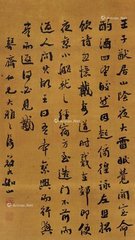 王子猷居山陰夜大雪眠覺開室命
酌酒四望皎然因起彷徨詠左思招
隱詩忽憶戴安道時戴在剡即便
夜乘小船就之經宿方至造門不前而
返人問其故王曰吾本乘興而行興
盡而返何必見戴